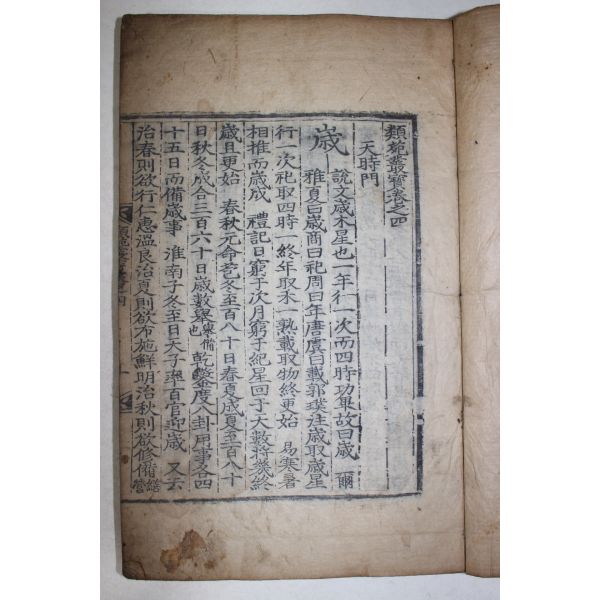 類苑叢寶卷之四
天時門
歲 說文歲木星也一年行一次而四時功畢故曰歲 爾
雅夏曰歲商曰祀周曰年唐虞曰載郭璞注歲取歲星
行一次祀取四時一終年取禾一熟載取物終更始 易寒暑
相推而歲成 禮記日窮于次月窮于紀星回于天數將幾終
歲且更始 春秋元命苞冬至百八十日春夏成夏至百八十
日秋冬成合三百六十日歲數擧 乾鑿度八卦用事各四
十五日而備歲事 淮南子冬至日天子率百官迎歲 又云
治春則欲行仁惠溫良治夏則欲布施鮮明治秋則欲修備繕營